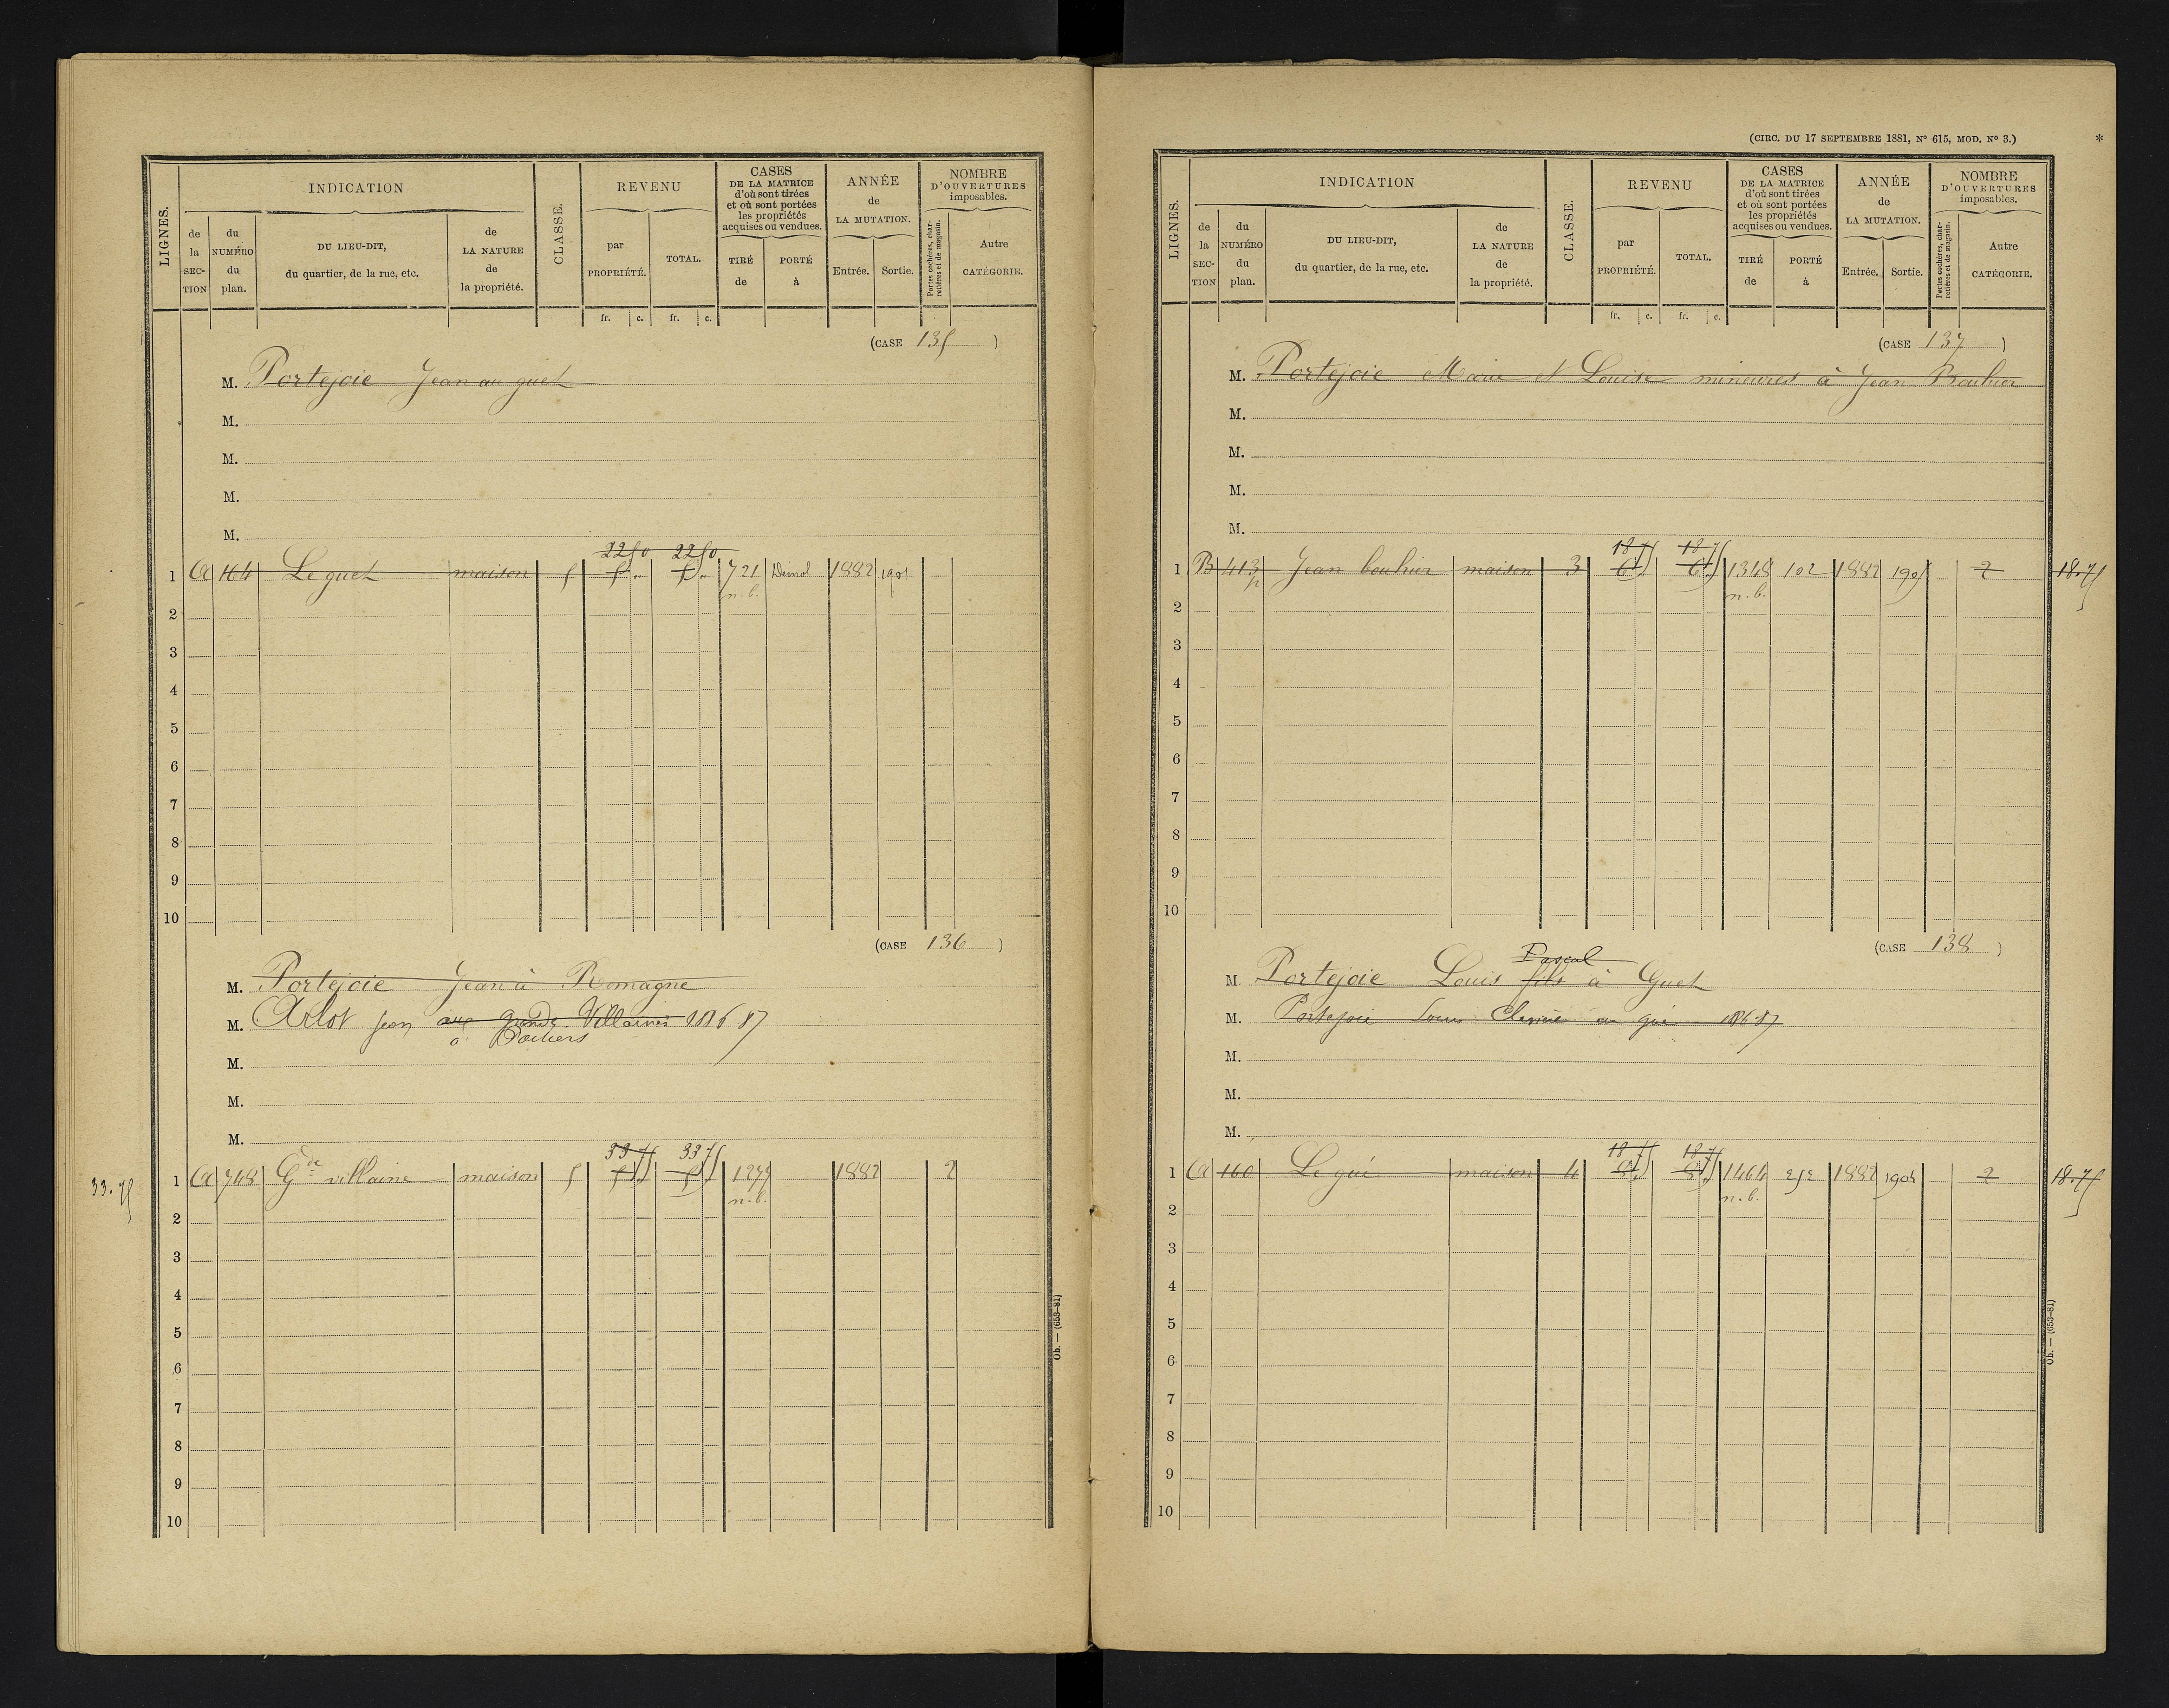 LIGNES.
INDICATION
de la SEC-TION
du NUMÉRO du plan.
DU LIEU-DIT, du quartier, de la rue, etc.
de LA NATURE de la propriété.
CLASSE.
REVENU
par PROPRIÉTÉ.
TOTAL.
CASES DE LA MATRICE d'où sont tirées et où sont portées les propriétés acquises ou vendues.
TIRÉ de
PORTÉ à
ANNÉE de LA MUTATION.
Entrée.
Sortie.
NOMBRE D'OUVERTURES imposables.
Portes cochères, charretières et de magasin.
Autre CATÉGORIE.
fr. c. fr. c.
(CASE 135)
M. Portejoie Jean au guet
M.
M.
M.
M.
22 50 22 50
1 A 164 Le guet maison 5 5 " 5 " 721 Démol 1882 1901
n.b.
2
3
4
5
6
7
8
9
10
(CASE 136)
M. Portejoie Jean à Romagne
M. Arlot Jean aux grands Villaines 1886 87
à Poitiers
M.
M.
M.
33 75 33 75
33.75 1 A 748 Gde villaine maison 5 1277 1882 2
n.b.
2
3
4
5
6
7
8
9
10
Ob. — (653-81)
(CIRC. DU 17 SEPTEMBRE 1881, N° 615, MOD. N° 3.) *
LIGNES.
INDICATION
de la SEC-TION
du NUMÉRO du plan.
DU LIEU-DIT, du quartier, de la rue, etc.
de LA NATURE de la propriété.
CLASSE.
REVENU
par PROPRIÉTÉ.
TOTAL.
CASES DE LA MATRICE d'où sont tirées et où sont portées les propriétés acquises ou vendues.
TIRÉ de
PORTÉ à
ANNÉE de LA MUTATION.
Entrée.
Sortie.
NOMBRE D'OUVERTURES imposables.
Portes cochères, charretières et de magasin.
Autre CATÉGORIE.
fr. c. fr. c.
(CASE 137)
M. Portejoie Marie et Louise mineures à Jean Bouhier
M.
M.
M.
M.
18 75 18 75
1 B 413 p Jean bouhier maison 3 6 6 1348 102 1882 1905 2 18.75
n.b.
2
3
4
5
6
7
8
9
10
(CASE 138)
Pascal
M. Portejoie Louis fils à Guet
M. Portejoie Louis au gué 1886-87
M.
M.
M.
18 75 18 75
1 A 160 Le gué maison 4 1464 252 1882 1904 2 18.75
n.b.
2
3
4
5
6
7
8
9
10
Ob. — (653-81)